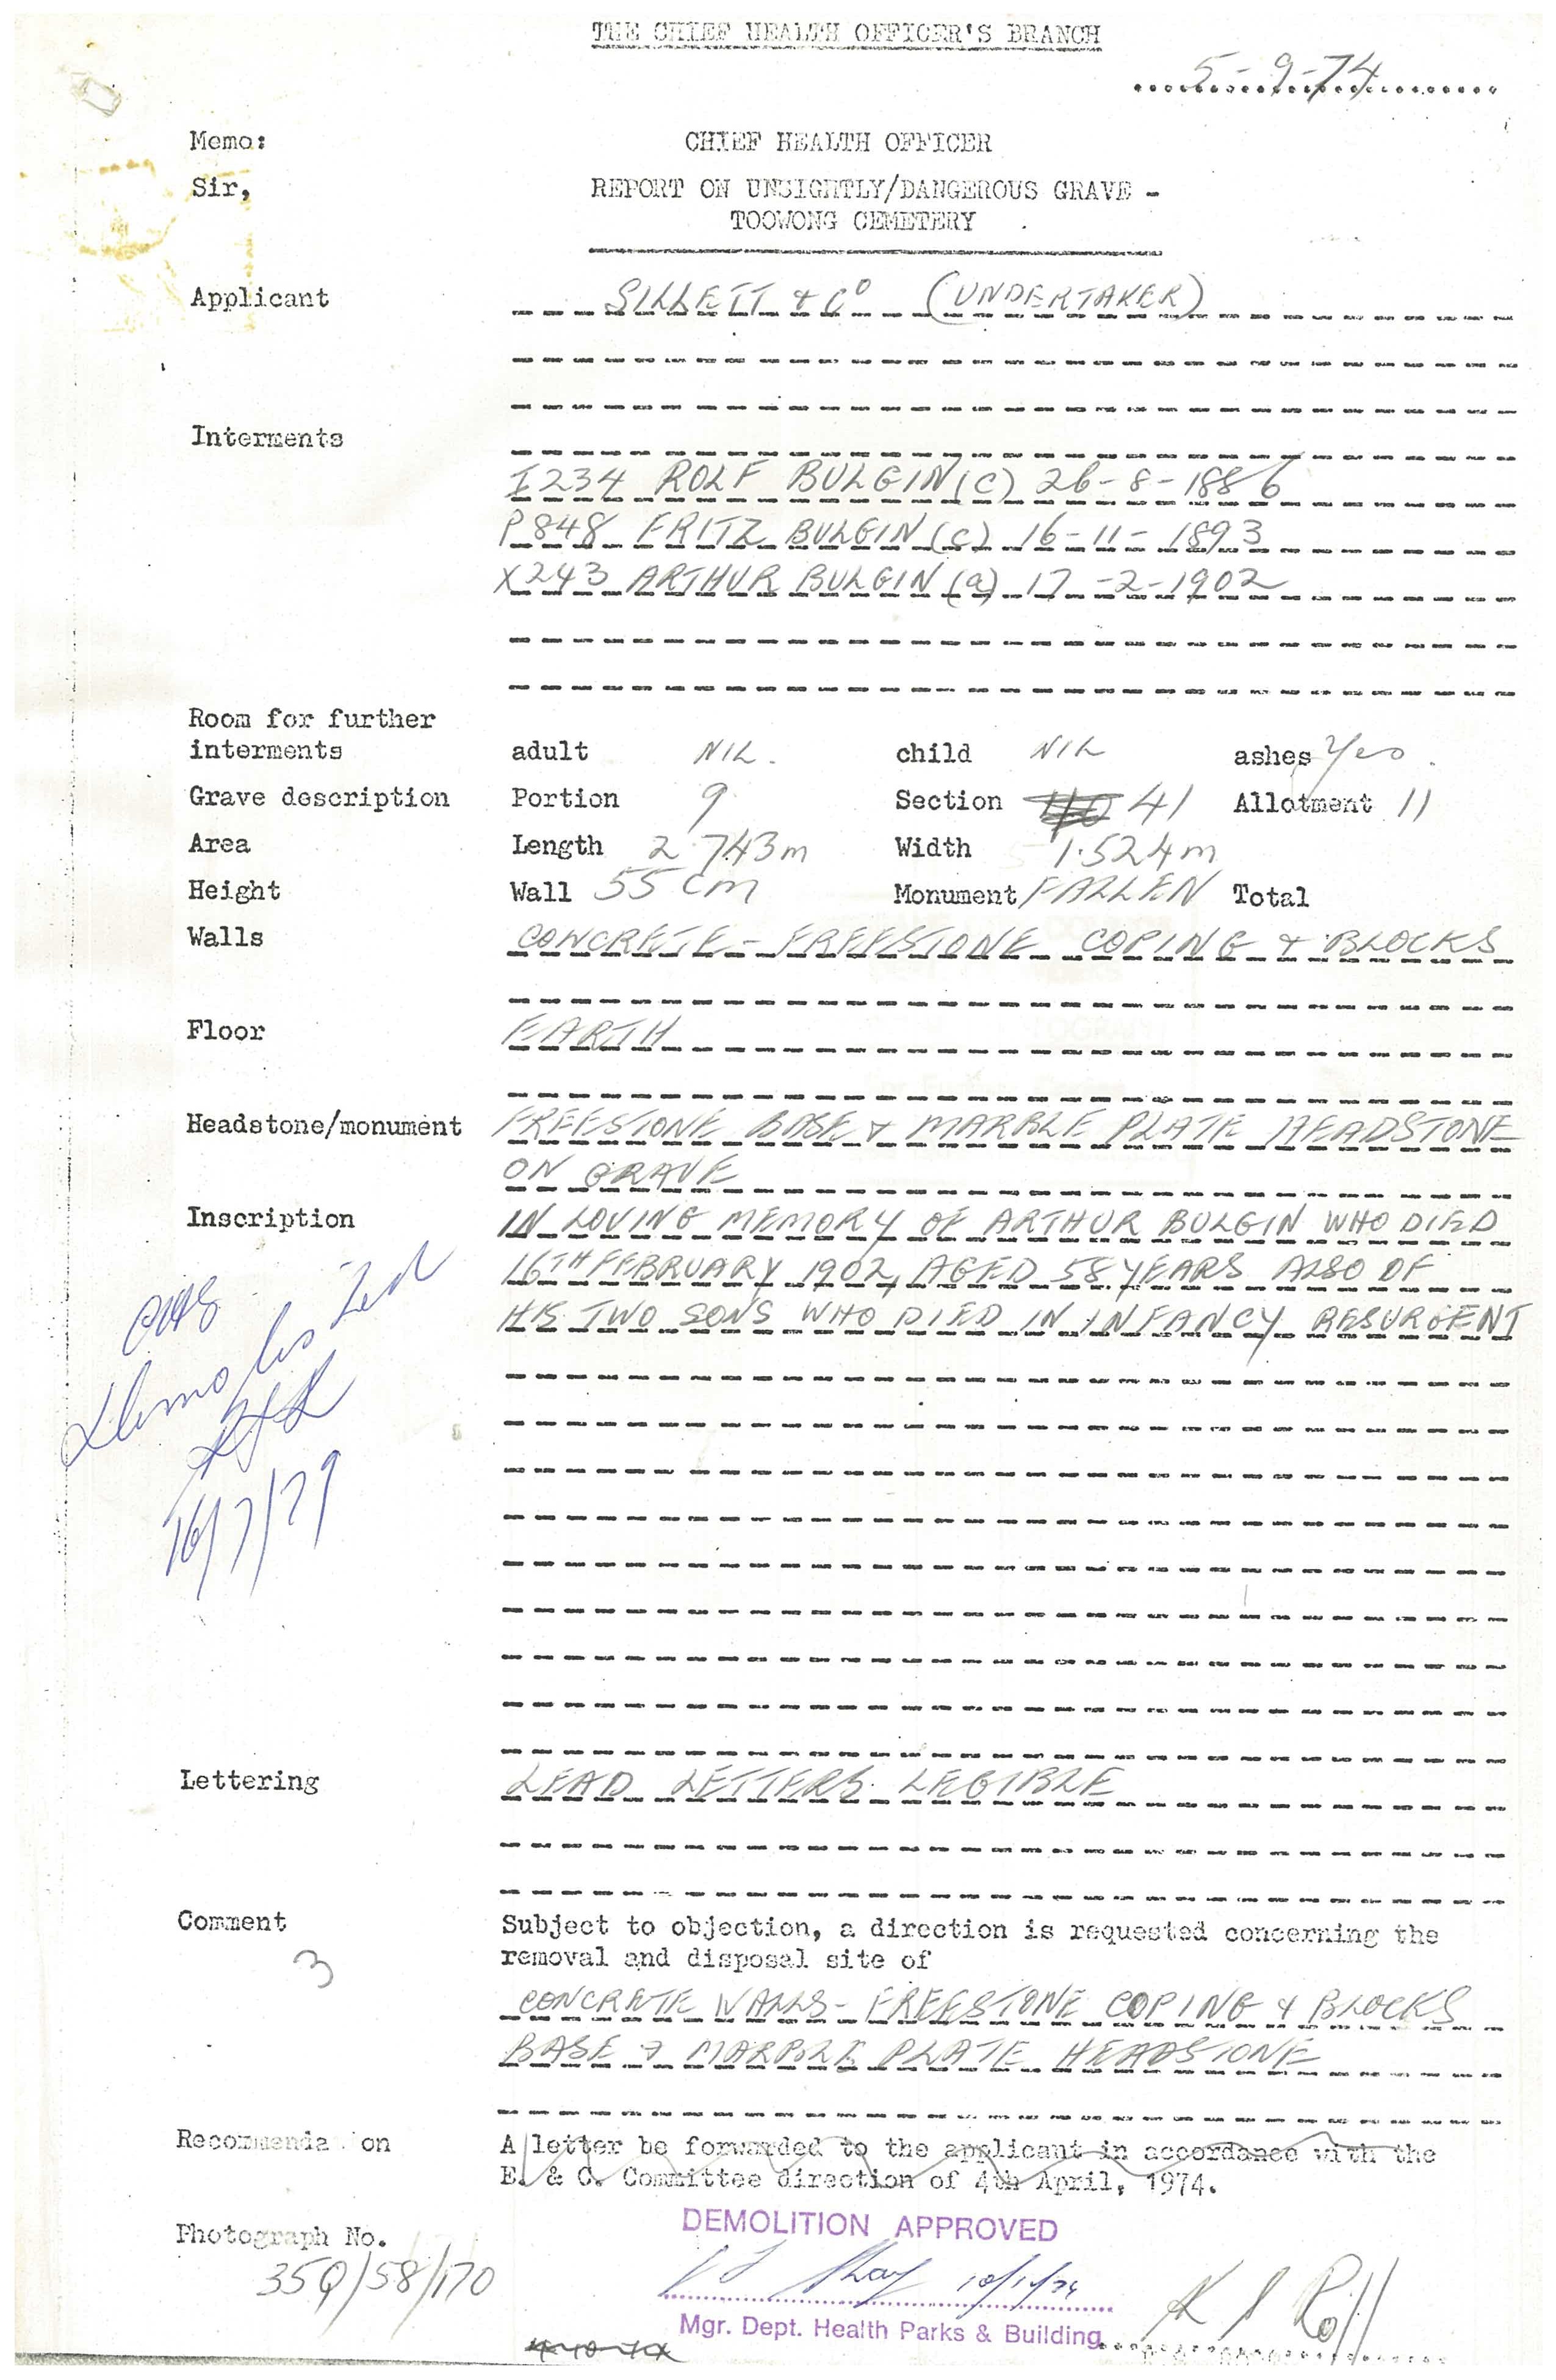 THE CHIEF HEALTH OFFICER'S BRANCH
5-9-74
Memo: CHIEF HEALTH OFFICER
Sir, REPORT ON UNSIGHTLY/DANGEROUS GRAVE -
TOOWONG CEMETERY
Applicant SILLETT & Co (UNDERTAKER)
Interments
I234 ROLF BULGIN (C) 26-8-1886
P848 FRITZ BULGIN (C) 16-11-1893
X243 ARTHUR BULGIN (a) 17-2-1902
Room for further
interments adult NIL. child NIL ashes Yes.
Grave description Portion 9 Section 41 Allotment 11
Area Length 2.743m Width 1.524m
Height Wall 55 cm Monument FALLEN Total
Walls CONCRETE - FREESTONE COPING & BLOCKS
Floor EARTH
Headstone/monument FREESTONE BASE & MARBLE PLATE HEADSTONE
ON GRAVE
Inscription IN LOVING MEMORY OF ARTHUR BULGIN WHO DIED
16TH FEBRUARY 1902, AGED 58 YEARS ALSO OF
HIS TWO SONS WHO DIED IN INFANCY RESURGENT
16/7/79
Lettering LEAD LETTERS. LEGIBLE
Comment Subject to objection, a direction is requested concerning the
removal and disposal site of
3
CONCRETE WALLS - FREESTONE COPING & BLOCKS
BASE & MARBLE PLATE HEADSTONE
Recommendation A letter be forwarded to the applicant in accordance with the
E. & C. Committee direction of 4th April, 1974.
DEMOLITION APPROVED
Photograph No.
35Q/58/170
Mgr. Dept. Health Parks & Building